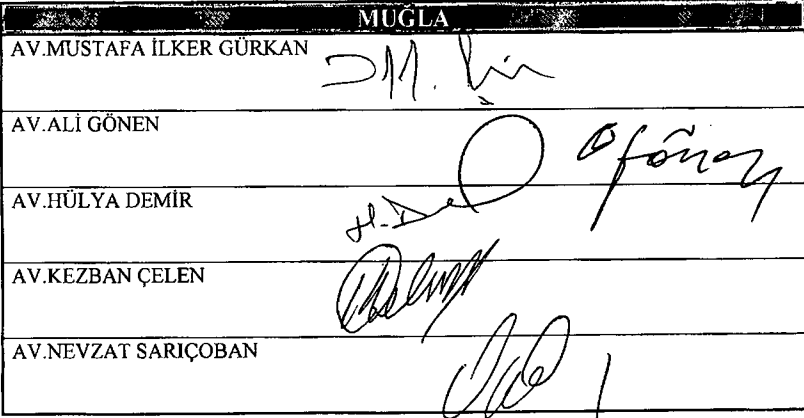 MUĞLA
AV.MUSTAFA İLKER GÜRKAN
AV.ALİ GÖNEN
AV.HÜLYA DEMİR
H.De
AV.KEZBAN ÇELEN
AV.NEVZAT SARIÇOBAN